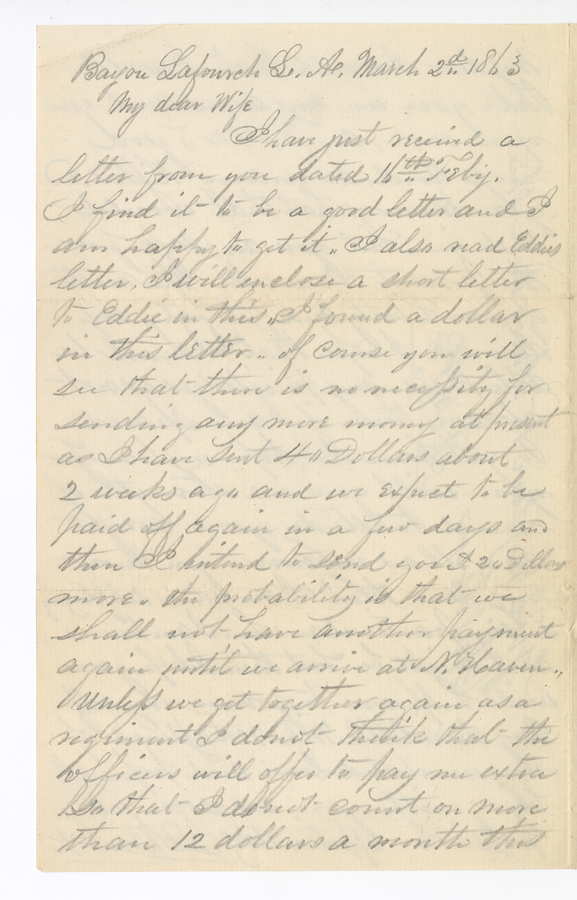 Bayou Lafourch La. March 2d 1863
My dear Wife
I have just received a
letter from you dated 16th Feby.
I find it to be a good letter and I
am happy to get it. I also read Eddies
letter. I will enclose a short letter
to Eddie in this. I found a dollar
in this letter. of course you will
see that there is no necessity for
sending any more money at present
as I have sent 40 Dollars about
2 weeks ago and we expect to be
paid off again in a few days and
then I intend to send you 20 Dollars
more. the probability is that we
shall not have another payment
again until we arrive at N. Haven.
Unless we get together again as a
regiment I do not think that the
officers will offer to pay me extra
so that I do not count on more
than 12 dollars a month this